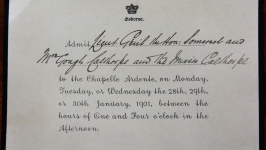 Osborne.
Admit Lieut Genl the Hon: Somerset and
Mrs Gough Calthorpe and the Misses Calthorpe
to the Chapelle Ardente, on Monday,
Tuesday, or Wednesday the 28th, 29th,
or 30th January, 1901, between the
hours of One and Four o'clock in the
Afternoon.